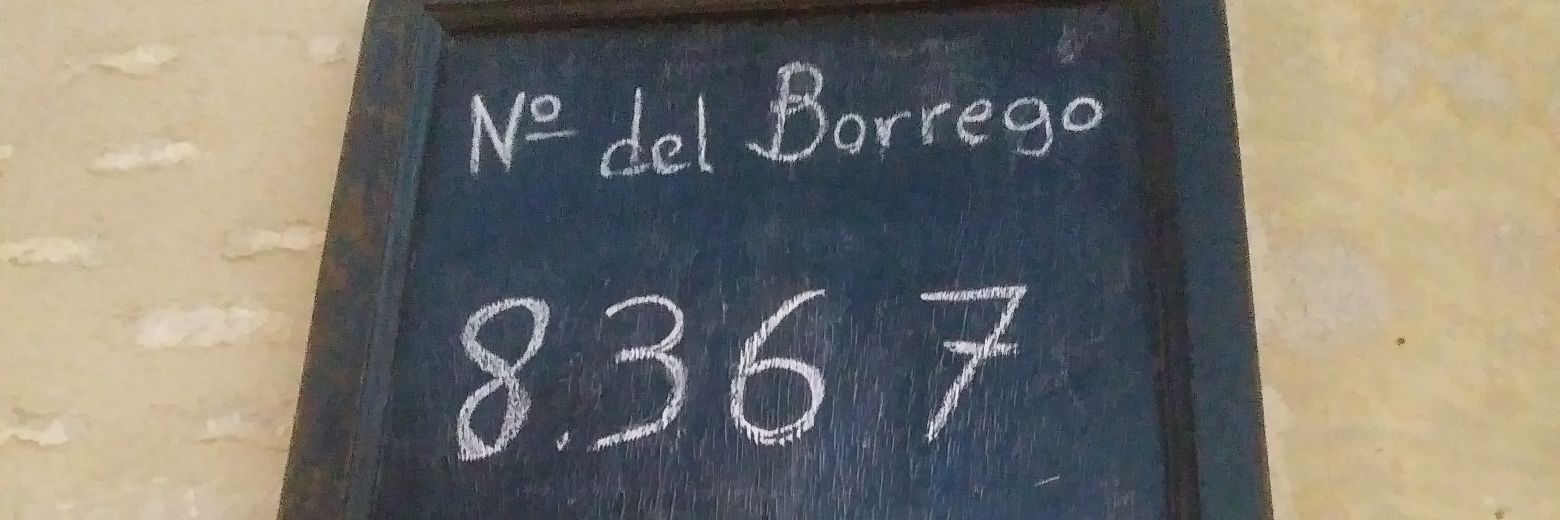 Nº del Borrego
8.367